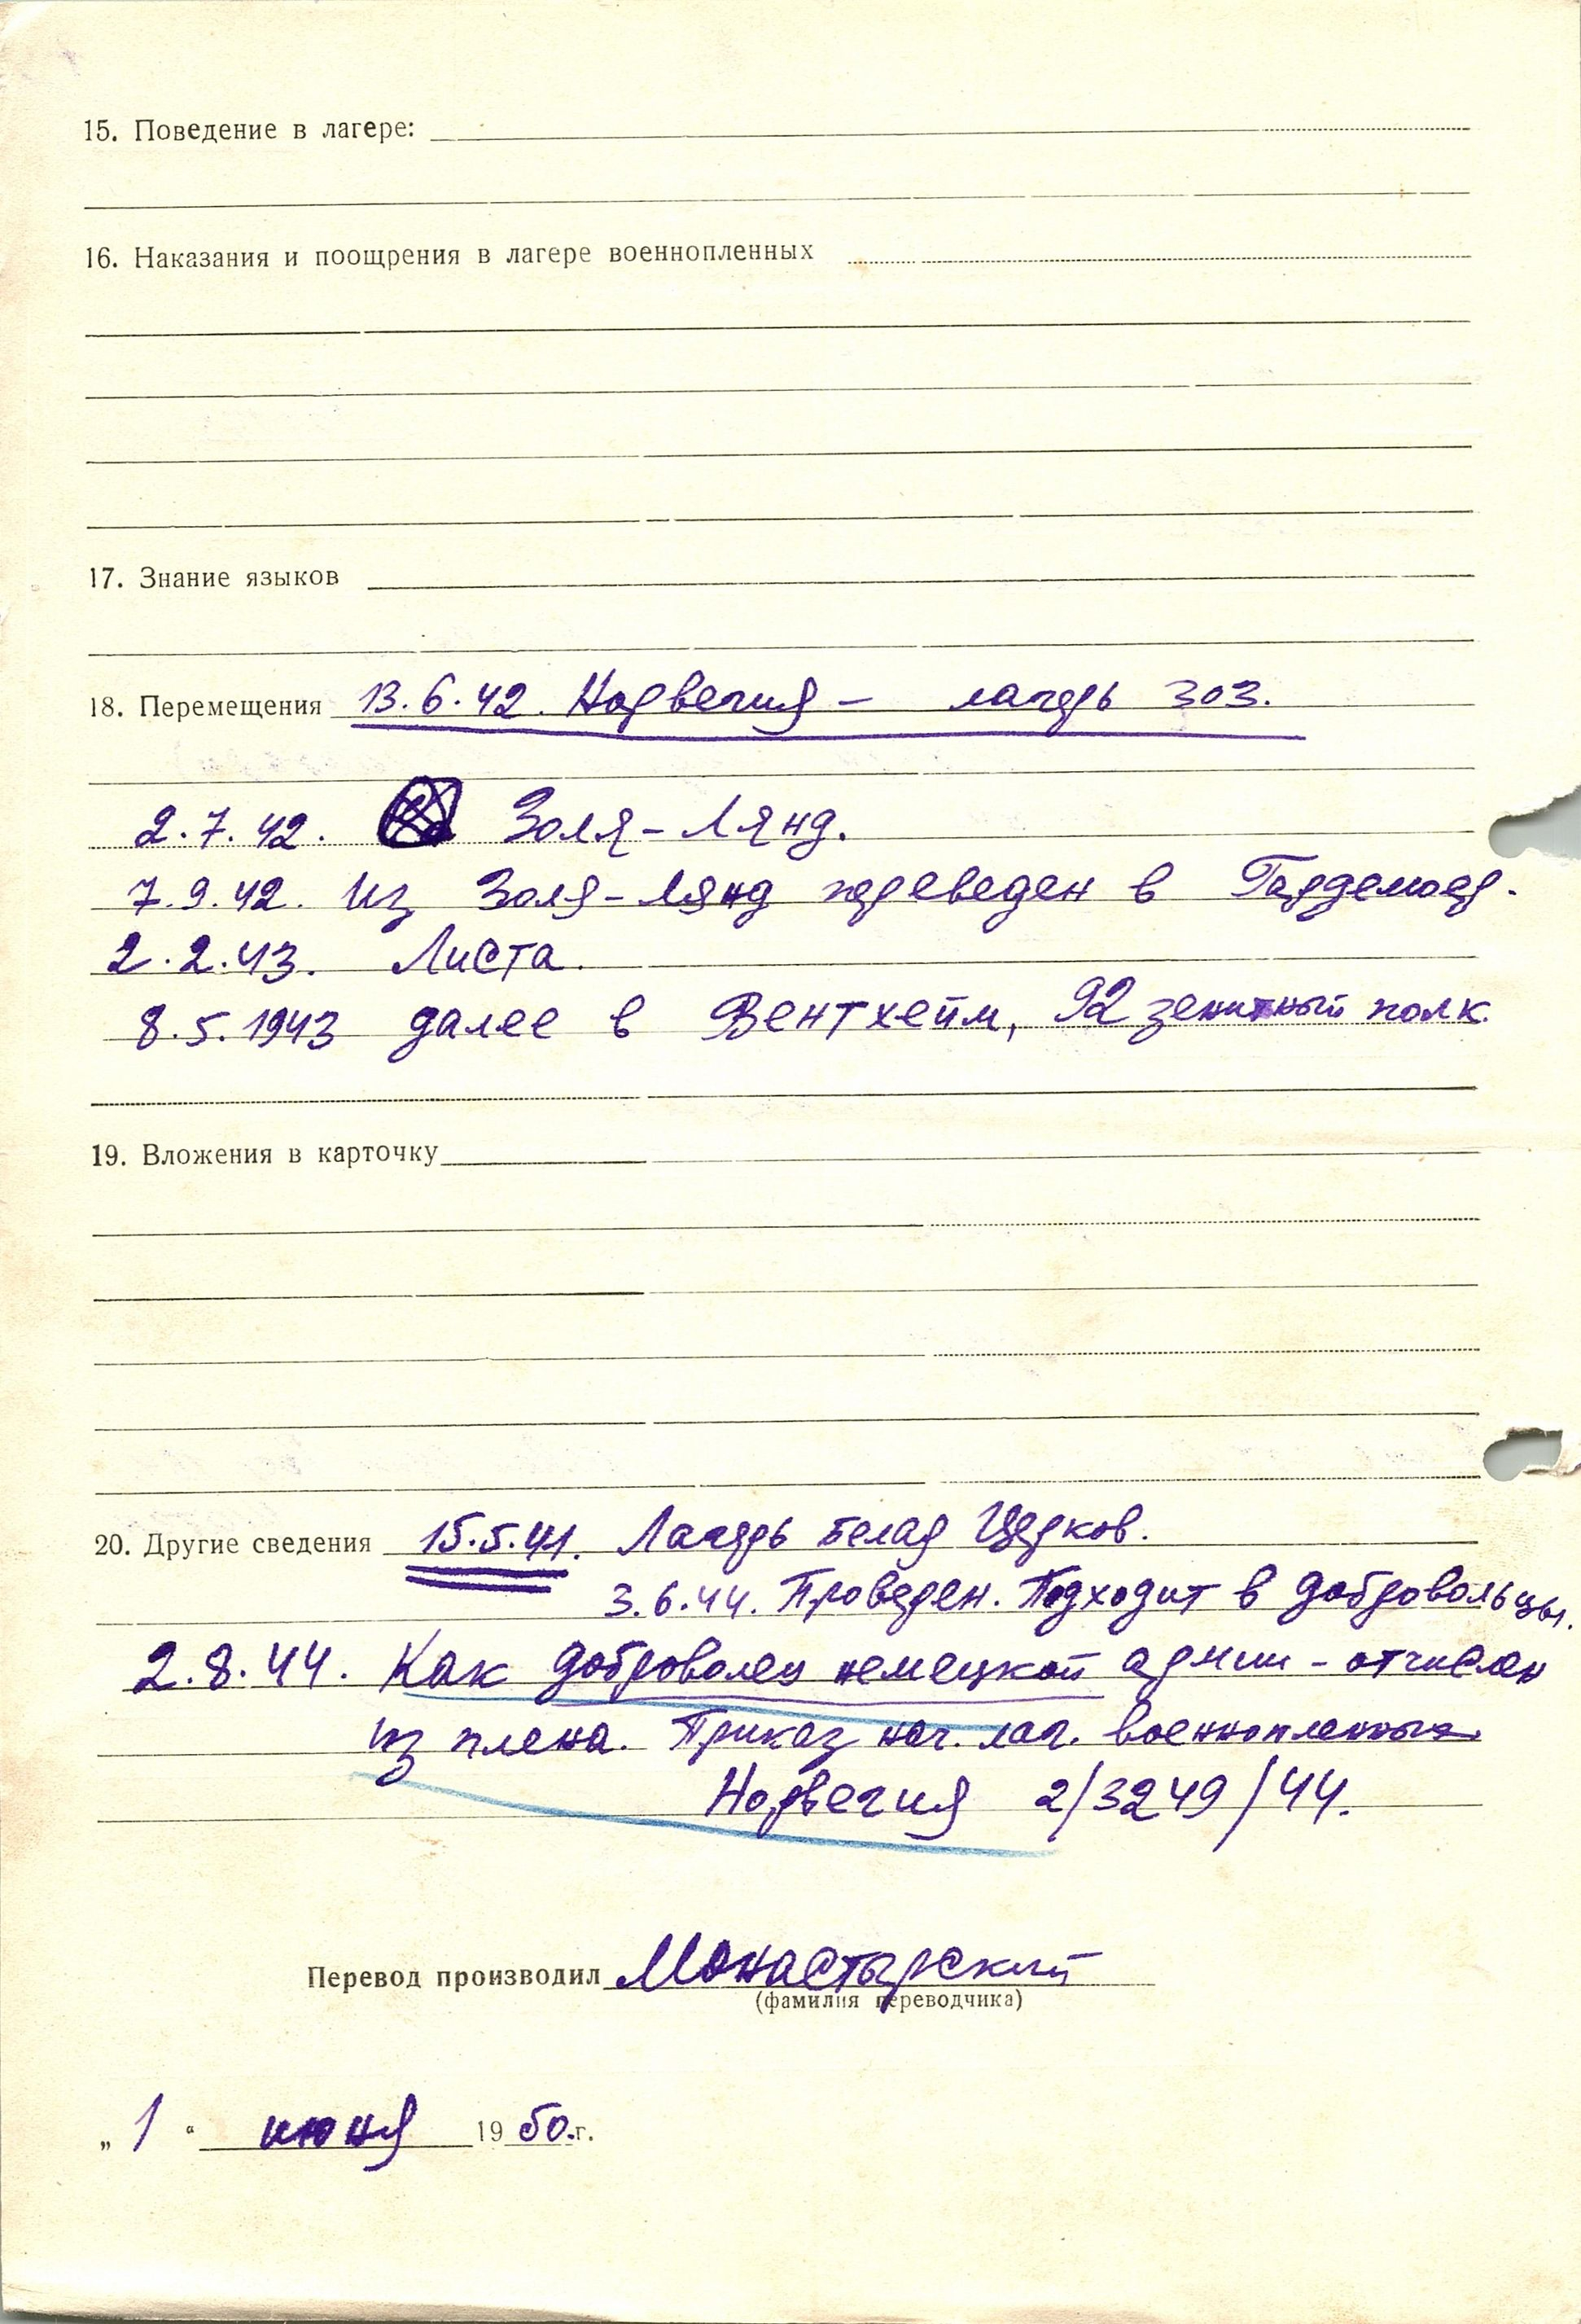 15. Поведение в лагере:
16. Наказания и поощрения в лагере военнопленных
17. Знание языков
18. Перемещения 13.6.42. Норвегия – лагерь 303.
2.7.42. Золя-Лянд.
7.9.42. Из Золя-Лянд переведен в Гардемоер.
2.2.43. Листа.
8.5.1943 далее в Вентхейм, 92 зенитный полк.
19. Вложения в карточку
20. Другие сведения 15.5.41. Лагерь Белая Церков.
3.6.44. Проверен. Подходит в добровольцы.
2.8.44. Как доброволец немецкой армии – отчислен
из плена. Приказ нач. лаг. военнопленных
Норвегия 2/3249/44.
Перевод производил Монастырский
(фамилия переводчика)
„ 1 “ июня 19 50.г.